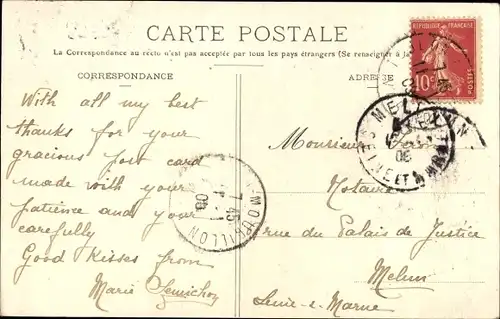 CARTE POSTALE
La Correspondance au recto n'est pas acceptée par tous les pays étrangers (Se renseigner à la
CORRESPONDANCE
ADRESSE
RÉPUBLIQUE FRANÇAISE
10c
POSTES
MELUN
SEINE ET MARNE
With all my best
thanks for your
gracious post card
made with your
patience and your
carefully
Good Kisses from
Marie
MOUZILLON
7 45
08
Monsieur
Notaire
rue du Palais de Justice
Melun
Seine-&-Marne